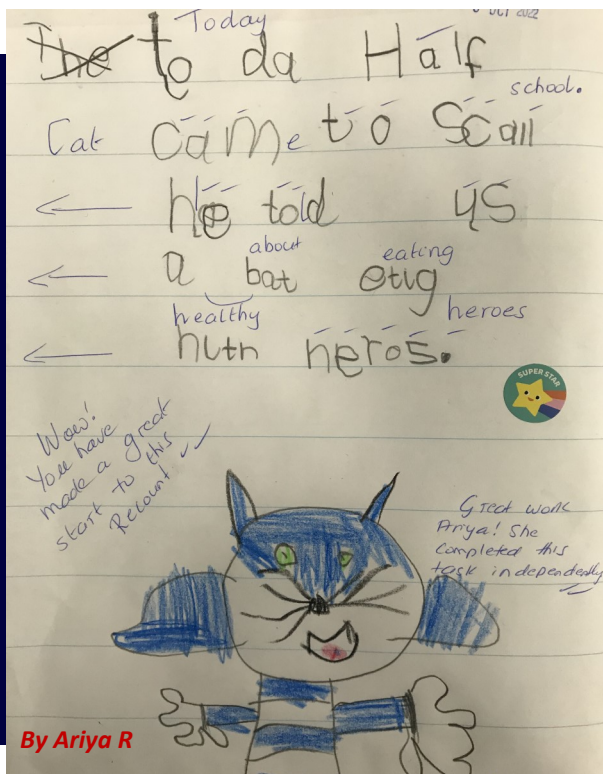 Oct 2022
Today
The to da Half
school.
Cat came to Scall
he told us
about eating
a bat etig
healthy heroes
huth heros.
SUPER STAR
Wow!
You have
made a great
start to this
Recount
Great work
Ariya! She
completed this
task independently
By Ariya R